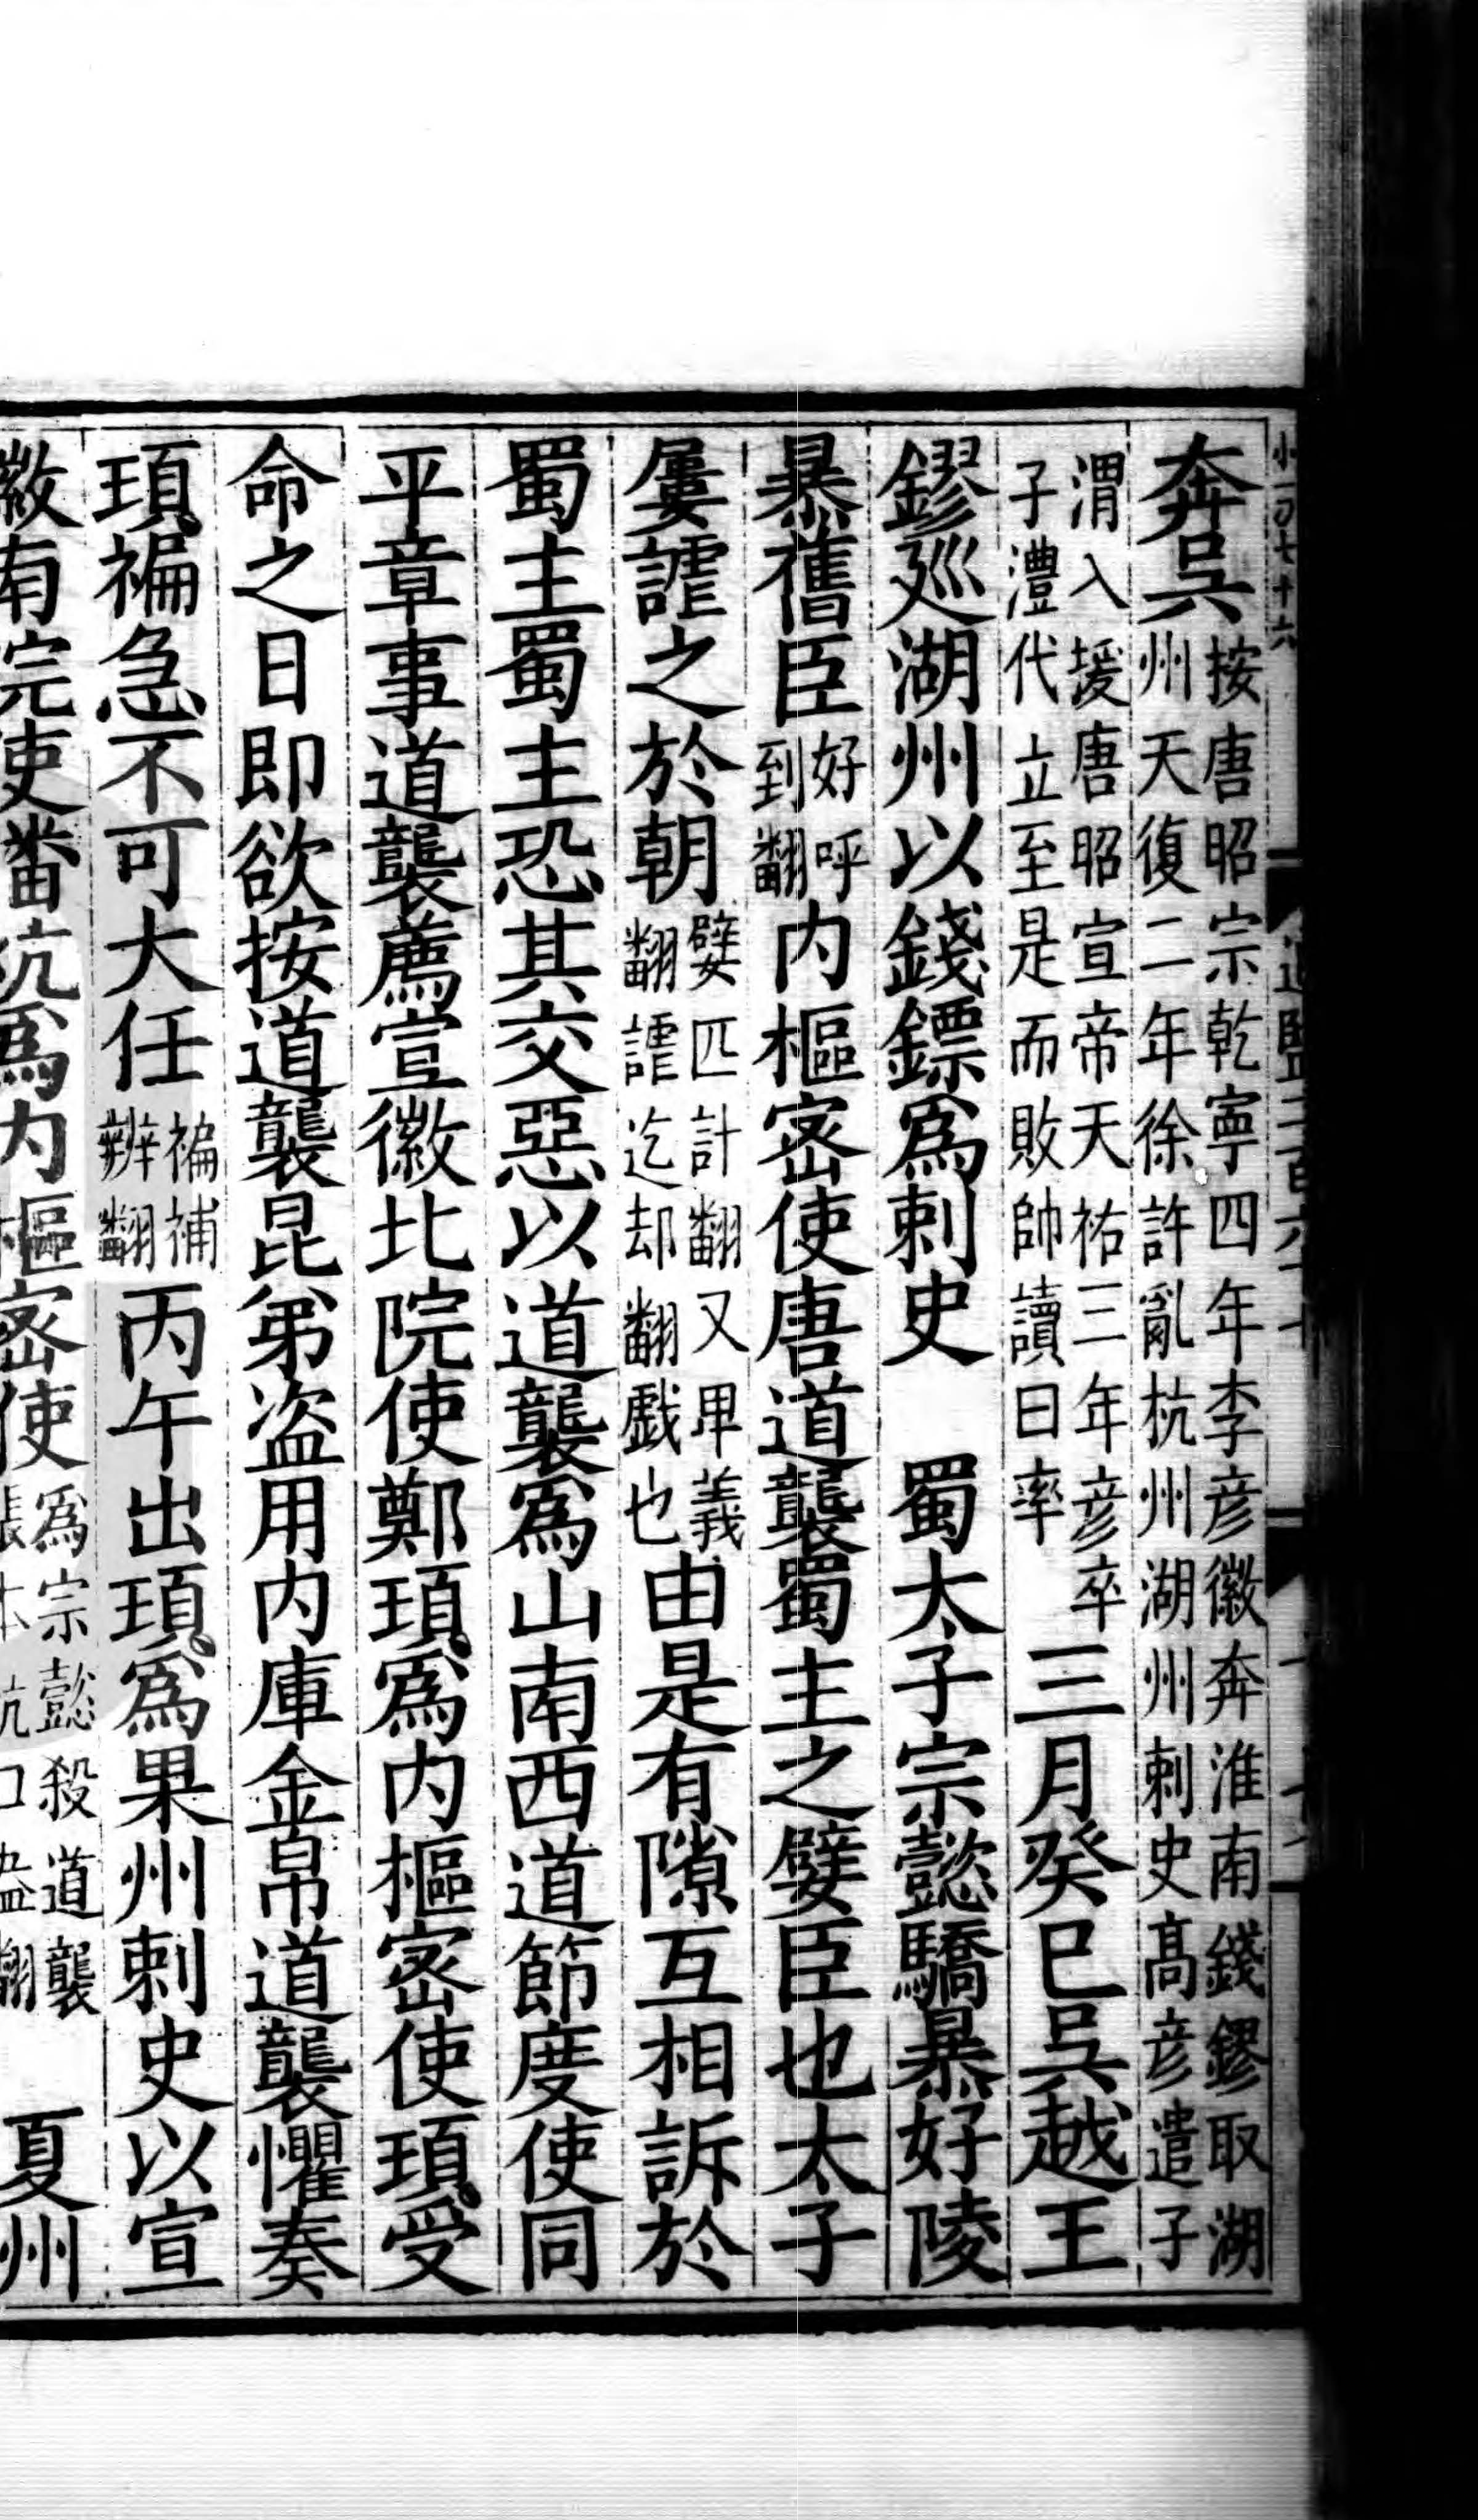 奔吳按唐昭宗乾寧四年李彦徽奔淮南錢鏐取湖州天復二年徐許亂杭州湖州刺史髙彦遣子
渭入援唐昭宣帝天祐三年彦卒子澧代立至是而敗帥讀曰率三月癸巳吳越王
鏐廵湖州以錢鏢爲刺史　蜀太子宗懿驕暴好陵
暴舊臣好呼到翻内樞宻使唐道襲蜀主之嬖臣也太子
屢謔之於朝嬖匹計翻又𤰞義翻謔迄却翻戲也由是有隙互相訴於
蜀主蜀主恐其交惡以道襲爲山南西道節度使同
平章事道襲薦宣徽北院使鄭頊爲内樞宻使頊受
命之日即欲按道襲昆弟盗用内庫金帛道襲懼奏
頊褊急不可大任褊補辨翻丙午出頊爲果州刺史以宣
徽南院使潘炕爲内樞宻使爲宗懿殺道襲張本炕口盎翻　夏州